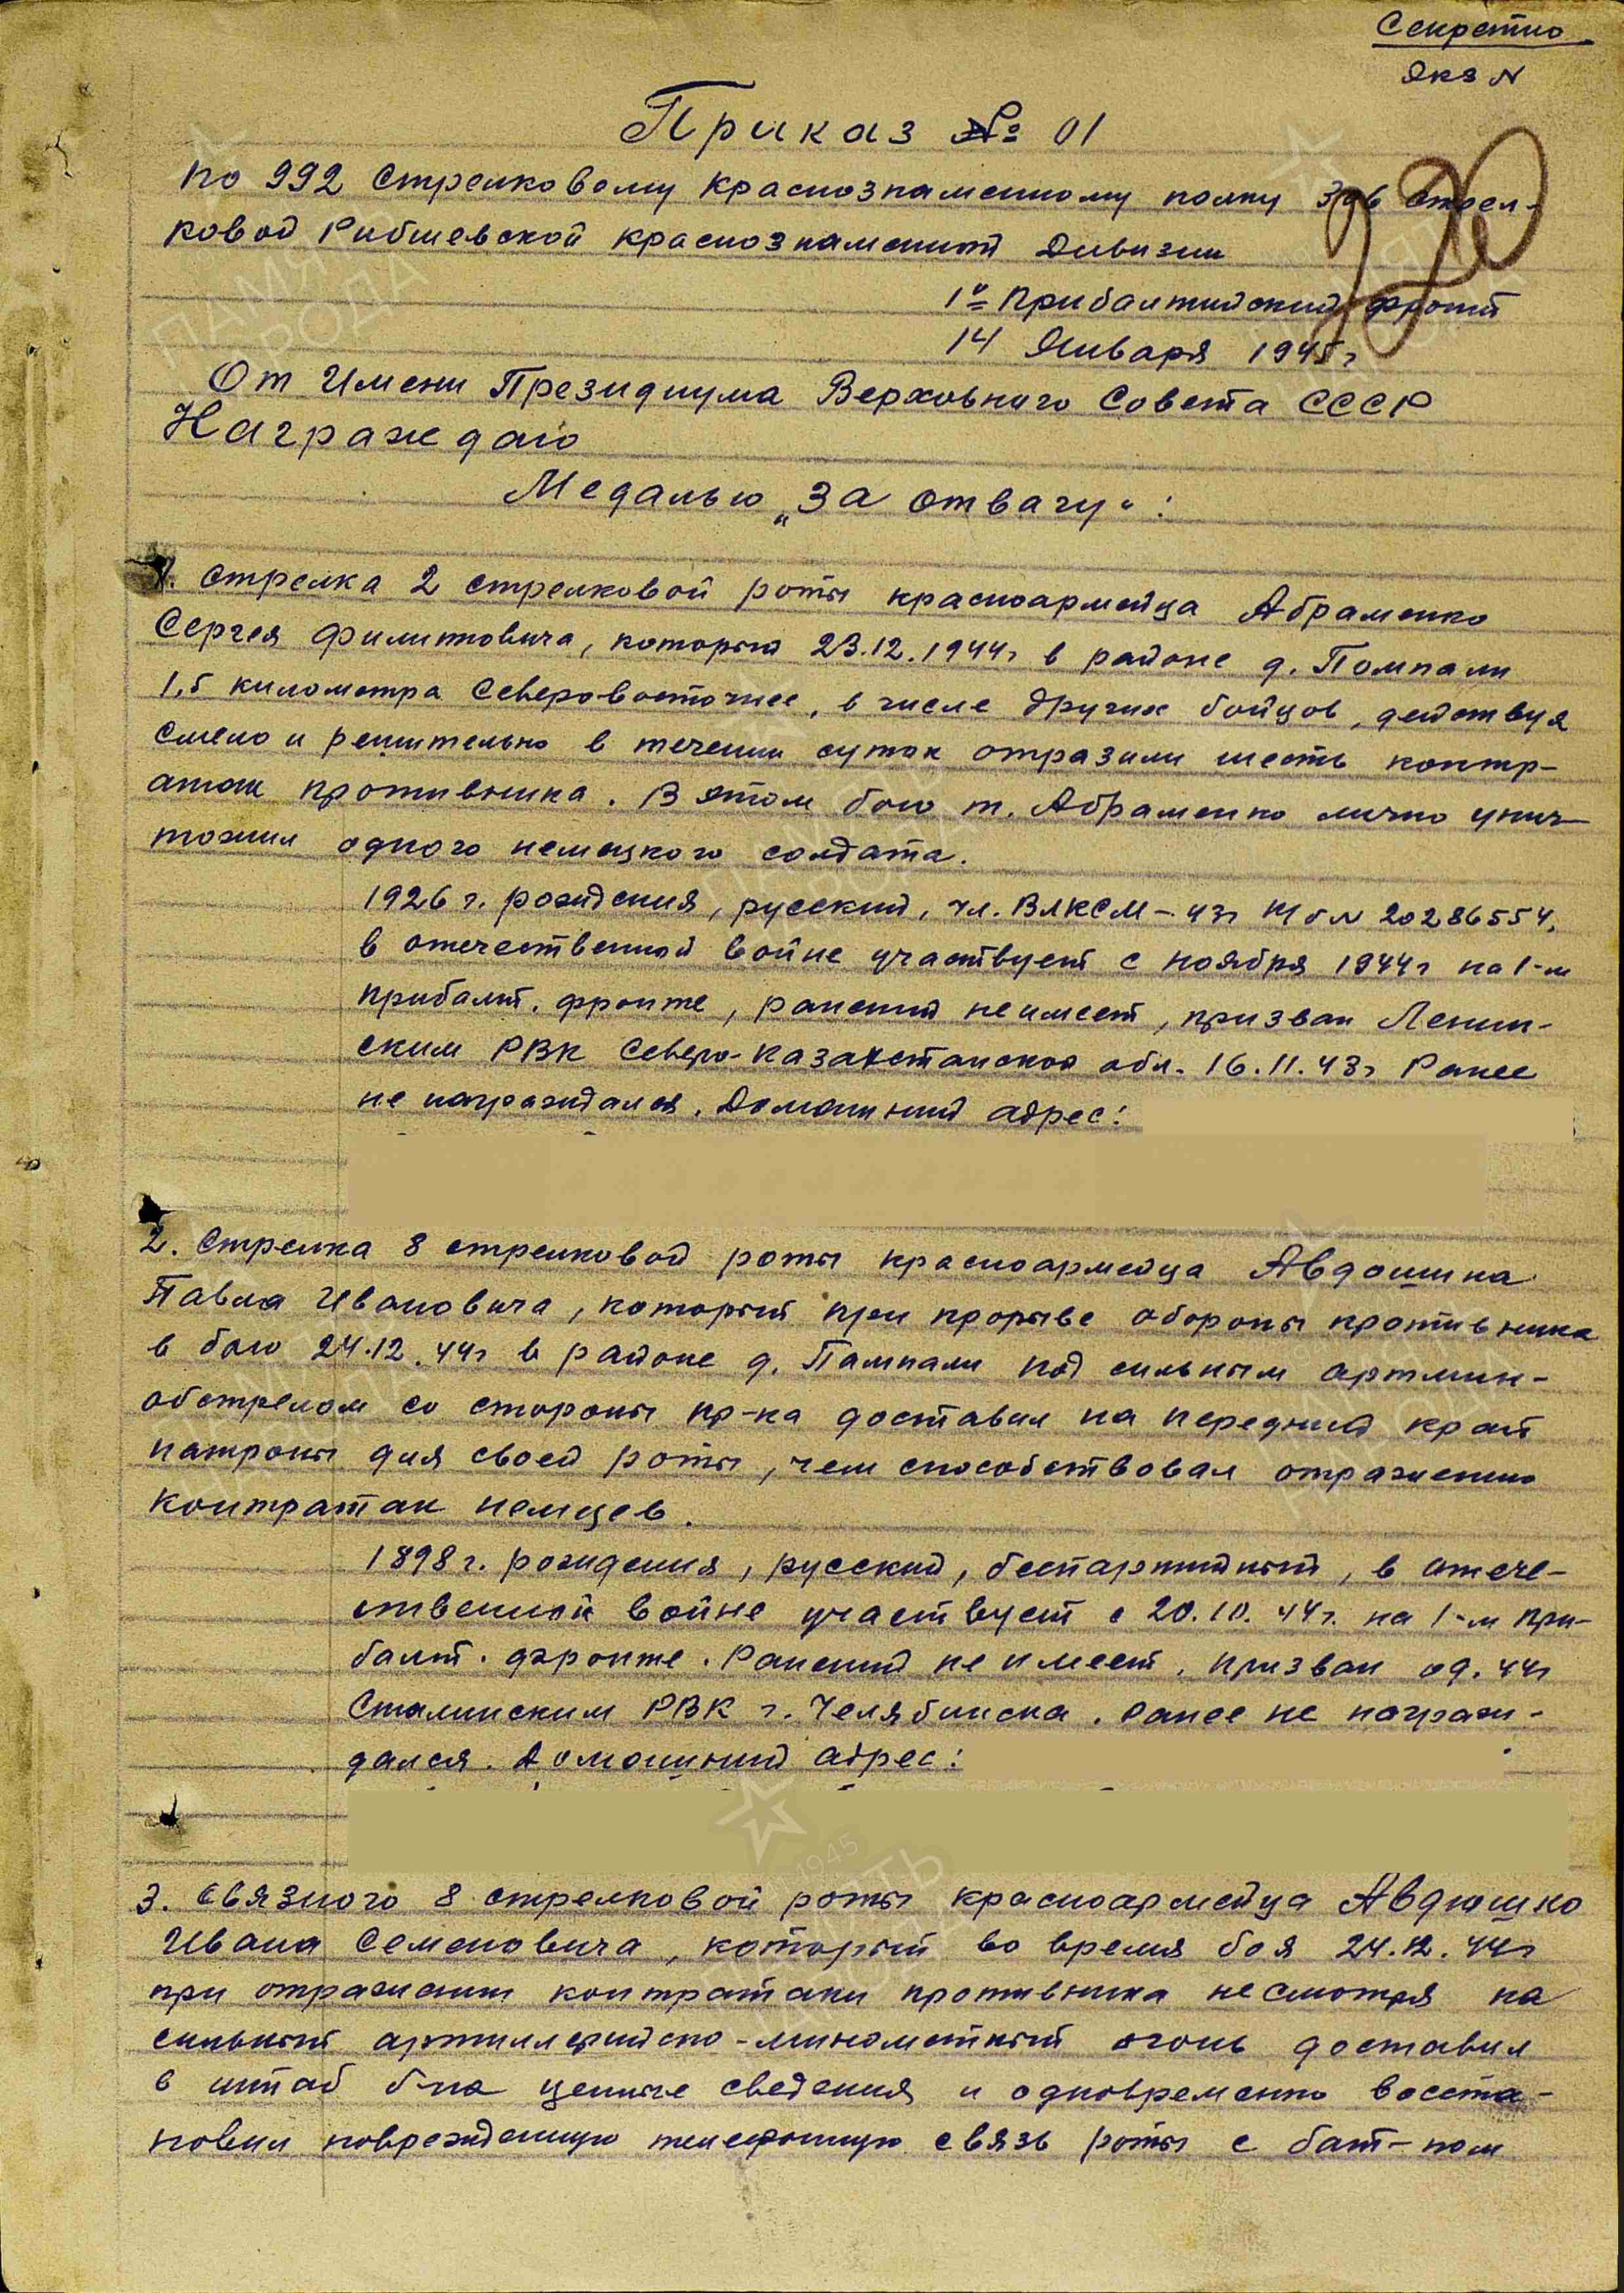 Секретно
Экз №
Приказ № 01
по 992 стрелковому краснознаменному полку 306 стрел-
ковой Рибшевской краснознаменной дивизии
1й Прибалтийский фронт
14 Января 1945г
От Имени Президиума Верховного Совета СССР
Награждаю
Медалью „За отвагу“:
1. Стрелка 2 стрелковой роты красноармейца Абраменко
Сергея Филиповича, который 23.12.1944г в районе д. Пампали
1,5 километра северовосточнее, в числе других бойцов, действуя
смело и решительно в течении суток отразили шесть контр-
атак противника. В этом бою т. Абраменко лично унич-
тожил одного немецкого солдата.
1926 г. рождения, русский, чл. ВЛКСМ – 43г № 20286554.
в отечественной войне участвует с ноября 1944г на 1-м
прибалт. фронте, ранений не имеет, призван Ленин-
ским РВК Северо-Казахстанской обл. 16.11.43г Ранее
не награждался. Домашний адрес:
2. Стрелка 8 стрелковой роты красноармейца Авдошина
Павла Ивановича, который при прорыве обороны противника
в бою 24.12.44г в районе д. Пампали под сильным артмин-
обстрелом со стороны пр-ка доставил на передний край
патроны для своей роты, чем способствовал отражению
контратак немцев.
1898 г. рождения, русский, беспартийный, в отече-
ственной войне участвует с 20.10.44г. на 1-м при-
балт. фронте. Ранений не имеет, призван 44г
Сталинским РВК г. Челябинска. Ранее не награж-
дался. Домашний адрес:
3. Связного 8 стрелковой роты красноармейца Авдюшко
Ивана Семеновича, который во время боя 24.12.44г
при отражении контратаки противника несмотря на
сильный артиллерийско-минометный огонь доставил
в штаб б-на ценные сведения и одновременно восста-
новил поврежденную телефонную связь роты с бат-ном
ПАМЯТЬ
НАРОДА
1945